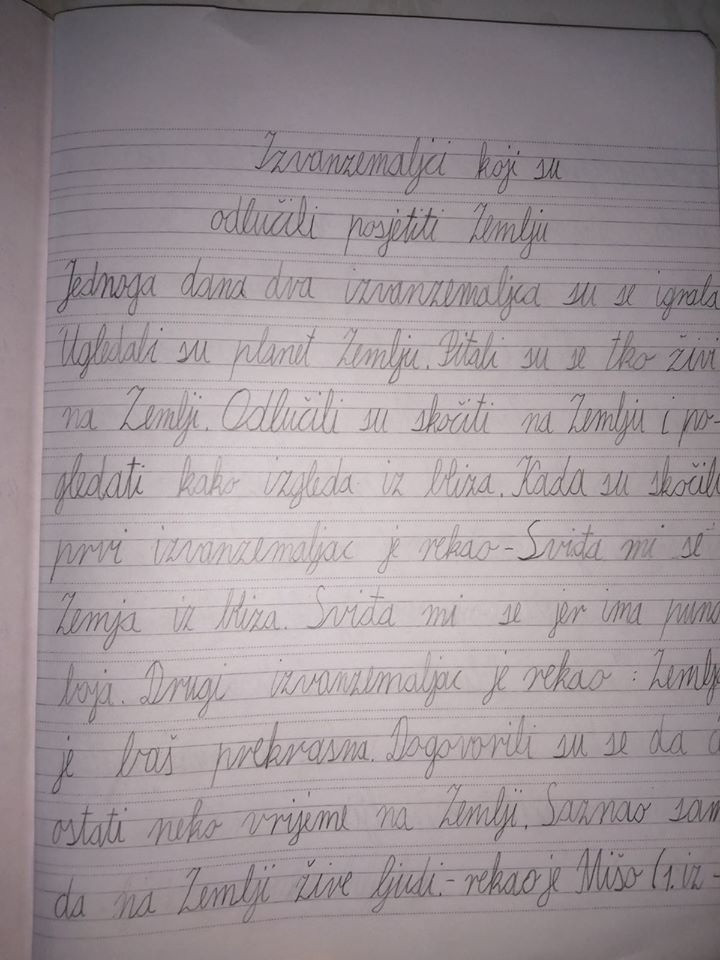 Izvanzemaljci koji su
odlučili posjetiti Zemlju
Jednoga dana dva izvanzemaljca su se igrala
Ugledali su planet Zemlju. Pitali su se tko živi
na Zemlji. Odlučili su skočiti na Zemlju i po-
gledati kako izgleda iz bliza. Kada su skočili
prvi izvanzemaljac je rekao - Sviđa mi se
Zemja iz bliza. Sviđa mi se jer ima puno
boja. Drugi izvanzemaljac je rekao : Zemlja
je baš prekrasna. Dogovorili su se da
ostati neko vrijeme na Zemlji. Saznao sam
da na Zemlji žive ljudi. - rekao je Mišo (1. iz-